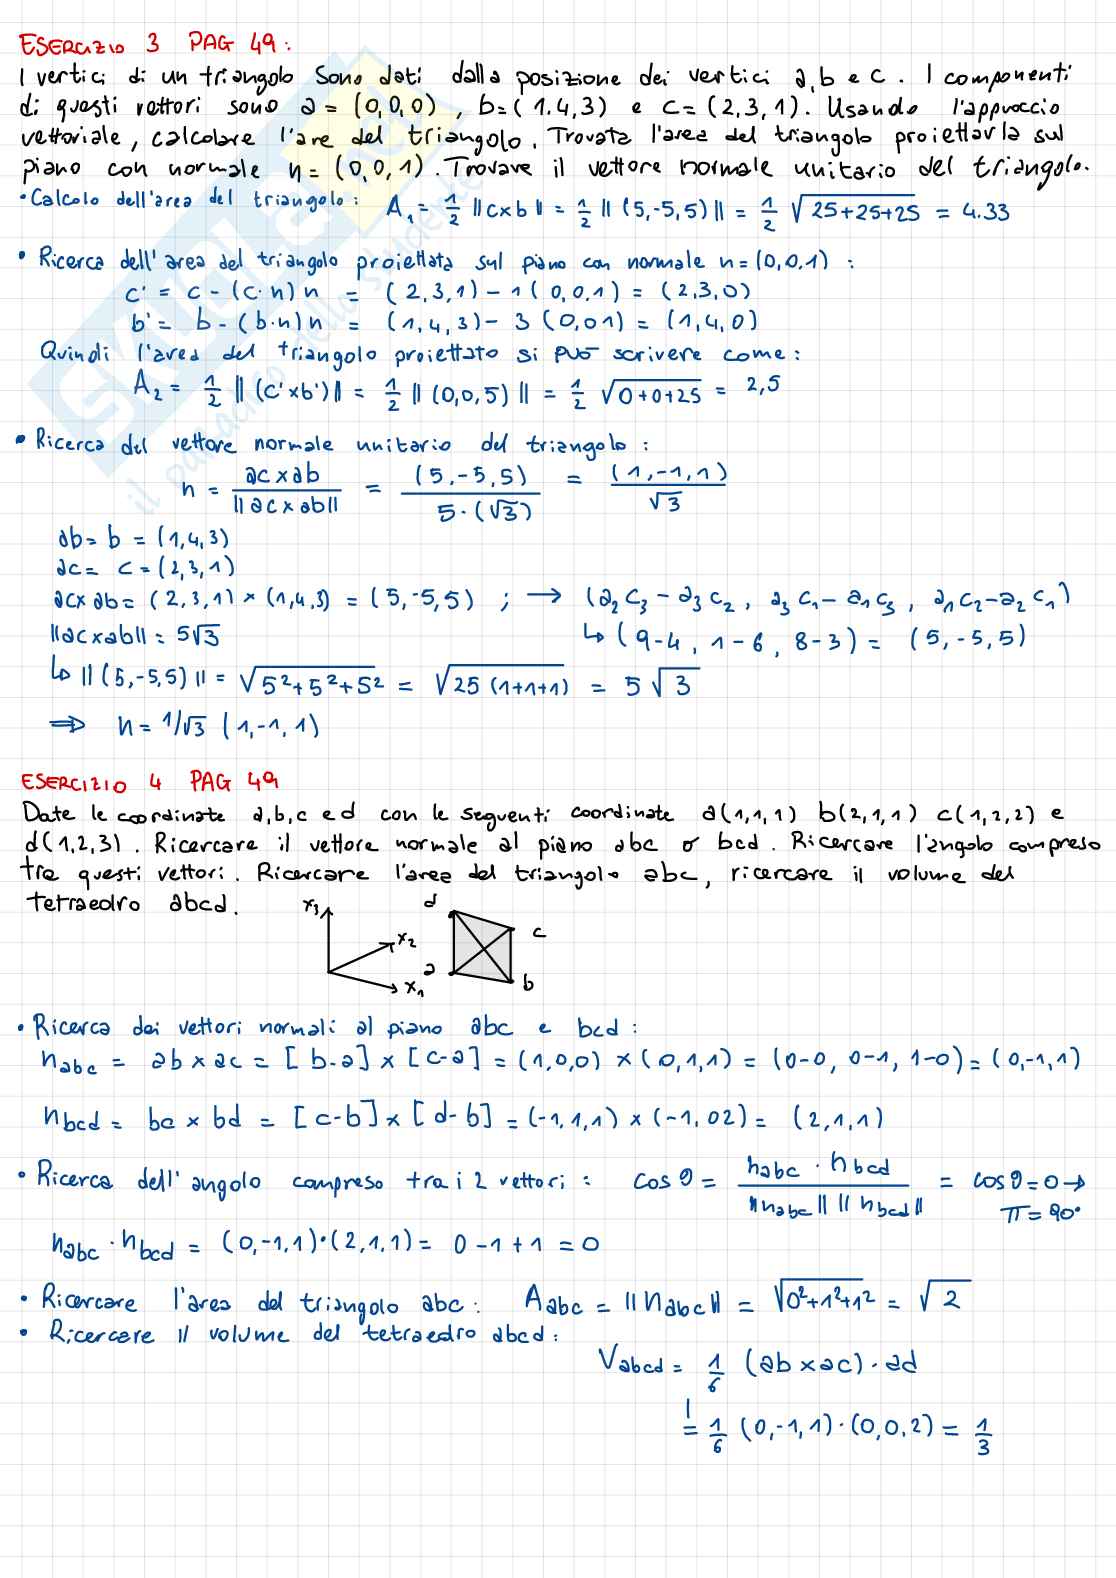 ESERCIZIO 3 PAG 49:
I vertici di un triangolo sono dati dalla posizione dei vertici a,b e c. I componenti
di questi vettori sono a = (0,0,0), b=(1.4,3) e c=(2,3,1). Usando l'approccio
vettoriale, calcolare l'are del triangolo. Trovata l'area del triangolo proiettarla sul
piano con normale n=(0,0,1). Trovare il vettore normale unitario del triangolo.
• Calcolo dell'area del triangolo: A₁ = 1/2 ||c×b|| = 1/2 ||(5,-5,5)|| = 1/2 √25+25+25 = 4.33
• Ricerca dell'area del triangolo proiettata sul piano con normale n=(0,0,1) :
c' = c - (c·n)n = (2,3,1) - 1(0,0,1) = (2,3,0)
b' = b - (b·n)n = (1,4,3) - 3(0,01) = (1,4,0)
Quindi l'area del triangolo proiettato si può scrivere come:
A₂ = 1/2 ||(c'×b')|| = 1/2 ||(0,0,5)|| = 1/2 √0+0+25 = 2,5
• Ricerca del vettore normale unitario del triangolo :
n = ac×ab / ||ac×ab|| = (5,-5,5) / 5·(√3) = (1,-1,1) / √3
ab = b = (1,4,3)
ac = c = (2,3,1)
ac×ab = (2,3,1) × (1,4,3) = (5,-5,5) ; → (a₂c₃ - a₃c₂, a₃c₁ - a₁c₃, a₁c₂ - a₂c₁)
||ac×ab|| = 5√3 ↳ (9-4, 1-6, 8-3) = (5,-5,5)
↳ ||(5,-5,5)|| = √5²+5²+5² = √25(1+1+1) = 5√3
⇒ n = 1/√3 (1,-1,1)
ESERCIZIO 4 PAG 49
Date le coordinate a,b,c ed d con le seguenti coordinate a(1,1,1) b(2,1,1) c(1,2,2) e
d(1,2,3). Ricercare il vettore normale al piano abc o bcd. Ricercare l'angolo compreso
tra questi vettori. Ricercare l'area del triangolo abc, ricercare il volume del
tetraedro abcd.
x₃
x₂
x₁
d
c
a
b
• Ricerca dei vettori normali al piano abc e bcd :
n_abc = ab × ac = [b-a] × [c-a] = (1,0,0) × (0,1,1) = (0-0, 0-1, 1-0) = (0,-1,1)
n_bcd = bc × bd = [c-b] × [d-b] = (-1,1,1) × (-1,02) = (2,1,1)
• Ricerca dell'angolo compreso tra i 2 vettori : cosθ = n_abc · n_bcd / ||n_abc|| ||n_bcd|| = cosθ=0→
π=90°
n_abc · n_bcd = (0,-1,1)·(2,1,1) = 0-1+1 = 0
• Ricercare l'area del triangolo abc: A_abc = ||n_abc|| = √0²+1²+1² = √2
• Ricercare il volume del tetraedro abcd:
V_abcd = 1/6 (ab×ac)·ad
= 1/6 (0,-1,1)·(0,0,2) = 1/3